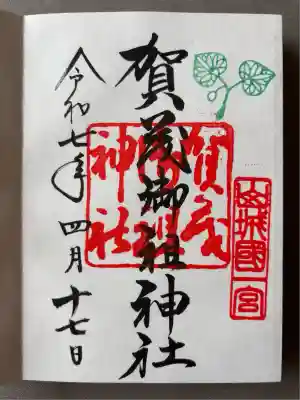 山城國一宮
賀茂御祖神社
賀茂御祖神社
令和七年四月十七日